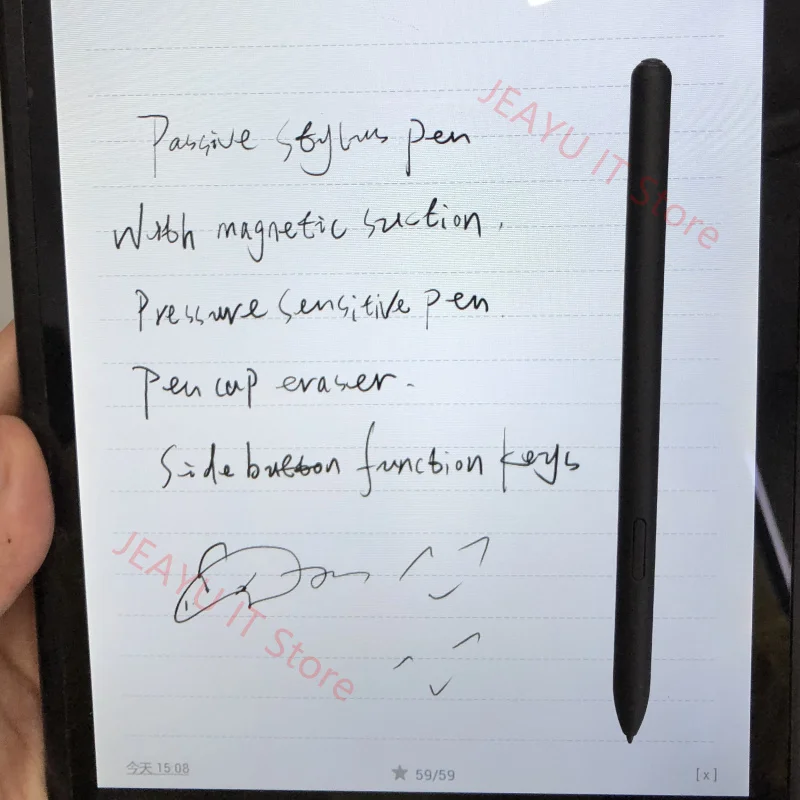 JEAYU IT Store
Passive stylus pen
With magnetic suction.
Pressure sensitive pen.
Pen cap eraser.
Side button function keys
JEAYU IT Store
今天 15:08
59/59
[x]